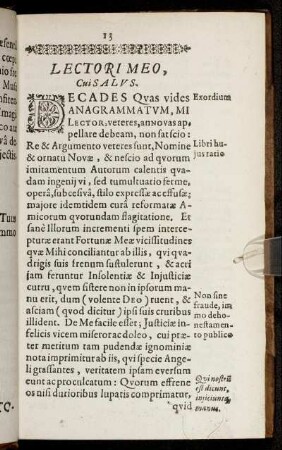 13
LECTORI MEO,
Cui SALVS.
DECADES Qvas vides
ANAGRAMMATVM, MI
LECTOR, veteres, an novas ap,
pellare debeam, non sat scio:
Re & Argumento veteres sunt, Nomine
& ornatu Novæ, & nescio ad qvorum
imitamentum Autorum calentis qva-
dam ingenij vi, sed tumultuatio ferme,
operâ, subcesivâ, stilo expressæ ac effusæ;
majore identidem curâ reformatæ A-
micorum qvorundam flagitatione. Et
sanè Illorum incrementi spem interce-
pturæ erant Fortunæ Meæ vicissitudines
qvæ Mihi conciliant ab illis, qvi qva-
drigis suis frenum sustulerunt, & acri
jam feruntur Insolentiæ & Injusticiæ
curru, qvem sistere non in ipsorum ma-
nu erit, dum (volente DEO) ruent, &
asciam (qvod dicitur) ipsi suis cruribus
illident. De Me facile esset; Justiciæ in-
felicis vicem misereor ac doleo, cui præ-
ter meritum tam pudendæ ignominiæ
nota imprimitur ab iis, qvi specie Ange-
li grassantes, veritatem ipsam eversum
eunt ac proculcatum: Qvorum effrene
os nisi durioribus lupatis comprimatur,
qvid
Exordium
Libri hu-
jus ratio
Non sine
fraude, im
mo deho-
nestamen-
to publico
Qvi nostrû
est dicunt,
injiciunt
manus.
esenti
cœpi
nio fat
Musi
nsiteo
Imagi
at au-
vâ de
jectis
Tuum
mmo
TO.